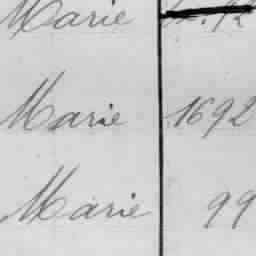 Marie
Marie 1692
Marie 99